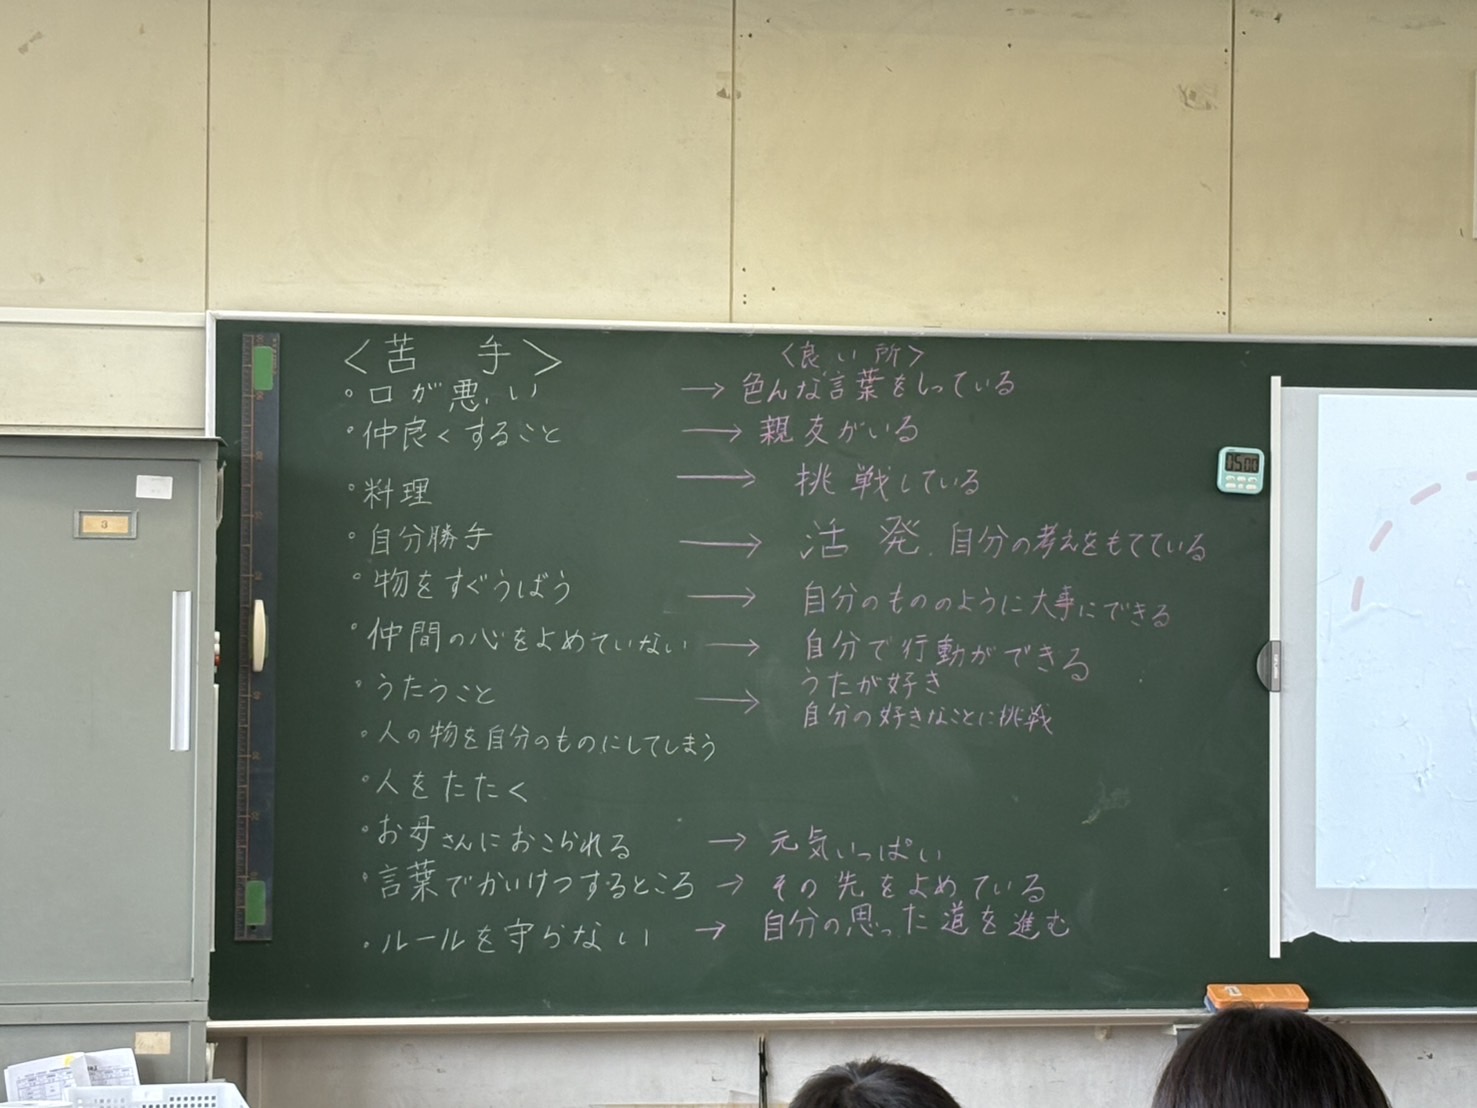 <苦 手>
<良い所>
・口が悪い → 色んな言葉をしっている
・仲良くすること → 親友がいる
・料理 → 挑戦している
・自分勝手 → 活発、自分の考えをもてている
・物をすぐうばう → 自分のもののように大事にできる
・仲間の心をよめていない → 自分で行動ができる
・うたうこと → うたが好き
自分の好きなことに挑戦
・人の物を自分のものにしてしまう
・人をたたく
・お母さんにおこられる → 元気いっぱい
・言葉でかいけつするところ → その先をよめている
・ルールを守らない → 自分の思った道を進む
3
05:00